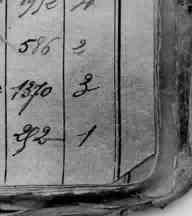 586 2
1370 3
292 1